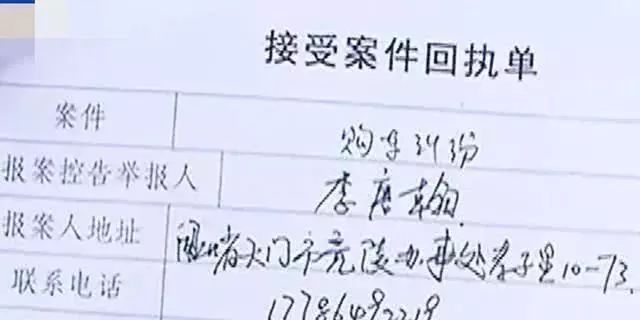 接受案件回执单
案件 购车纠纷
报案控告举报人 李唐翰
报案人地址 省天门市竟陵办事处孝子里10-73
联系电话 17786492219